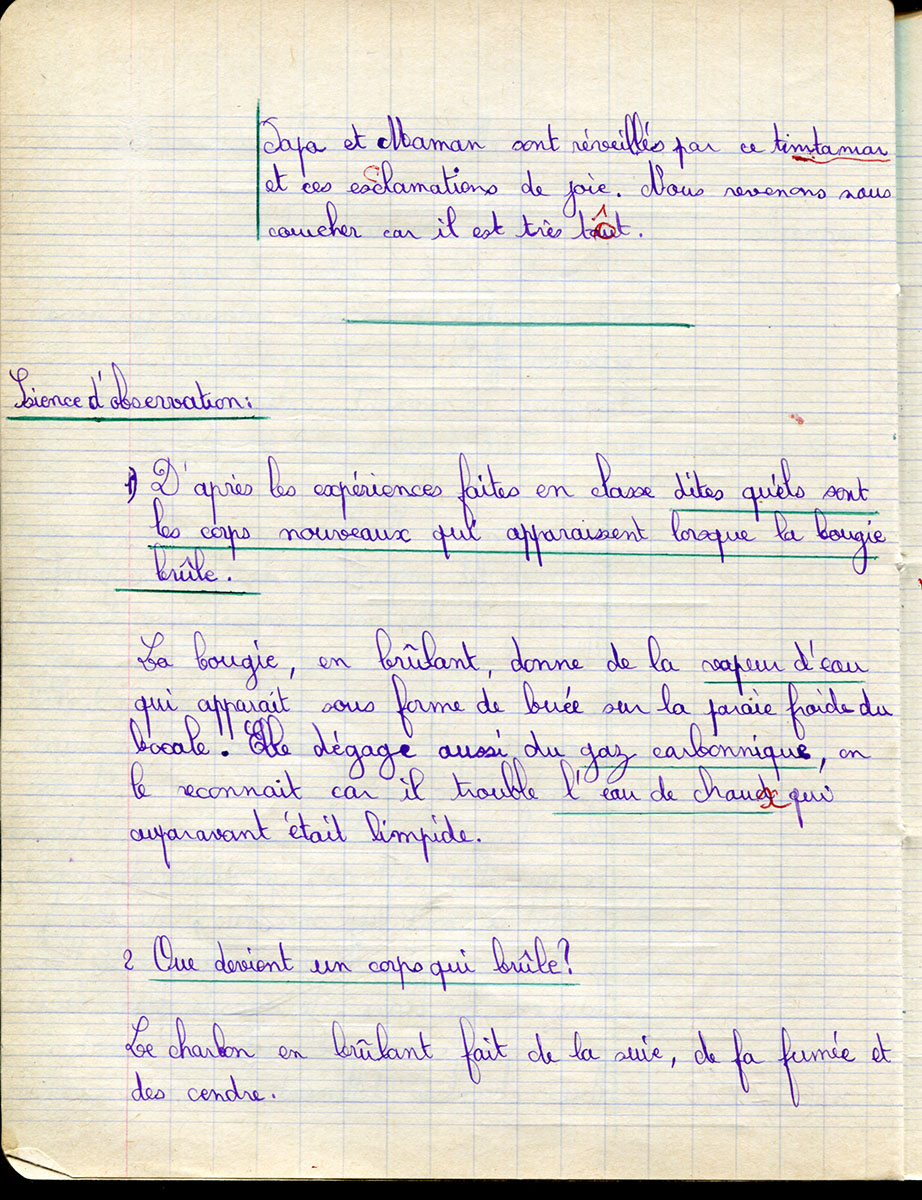 Papa et Maman sont réveillés par ce timtamar
et ces esclamations de joie. Nous revenons nous
coucher car il est très tôt.
Sience d'observation:
1) D'après les expériences faites en classe dites quels sont
les corps nouveaux qui apparaissent lorsque la bougie
brûle.
La bougie, en brûlant, donne de la vapeur d'eau
qui apparaît sous forme de buée sur la paraie froide du
bocale. Elle dégage aussi du gaz carbonnique, on
le reconnait car il trouble l'eau de chaux qui
auparavant était limpide.
2 Que devient un corps qui brûle?
Le charbon en brûlant fait de la suie, de fa fumée et
des cendre.